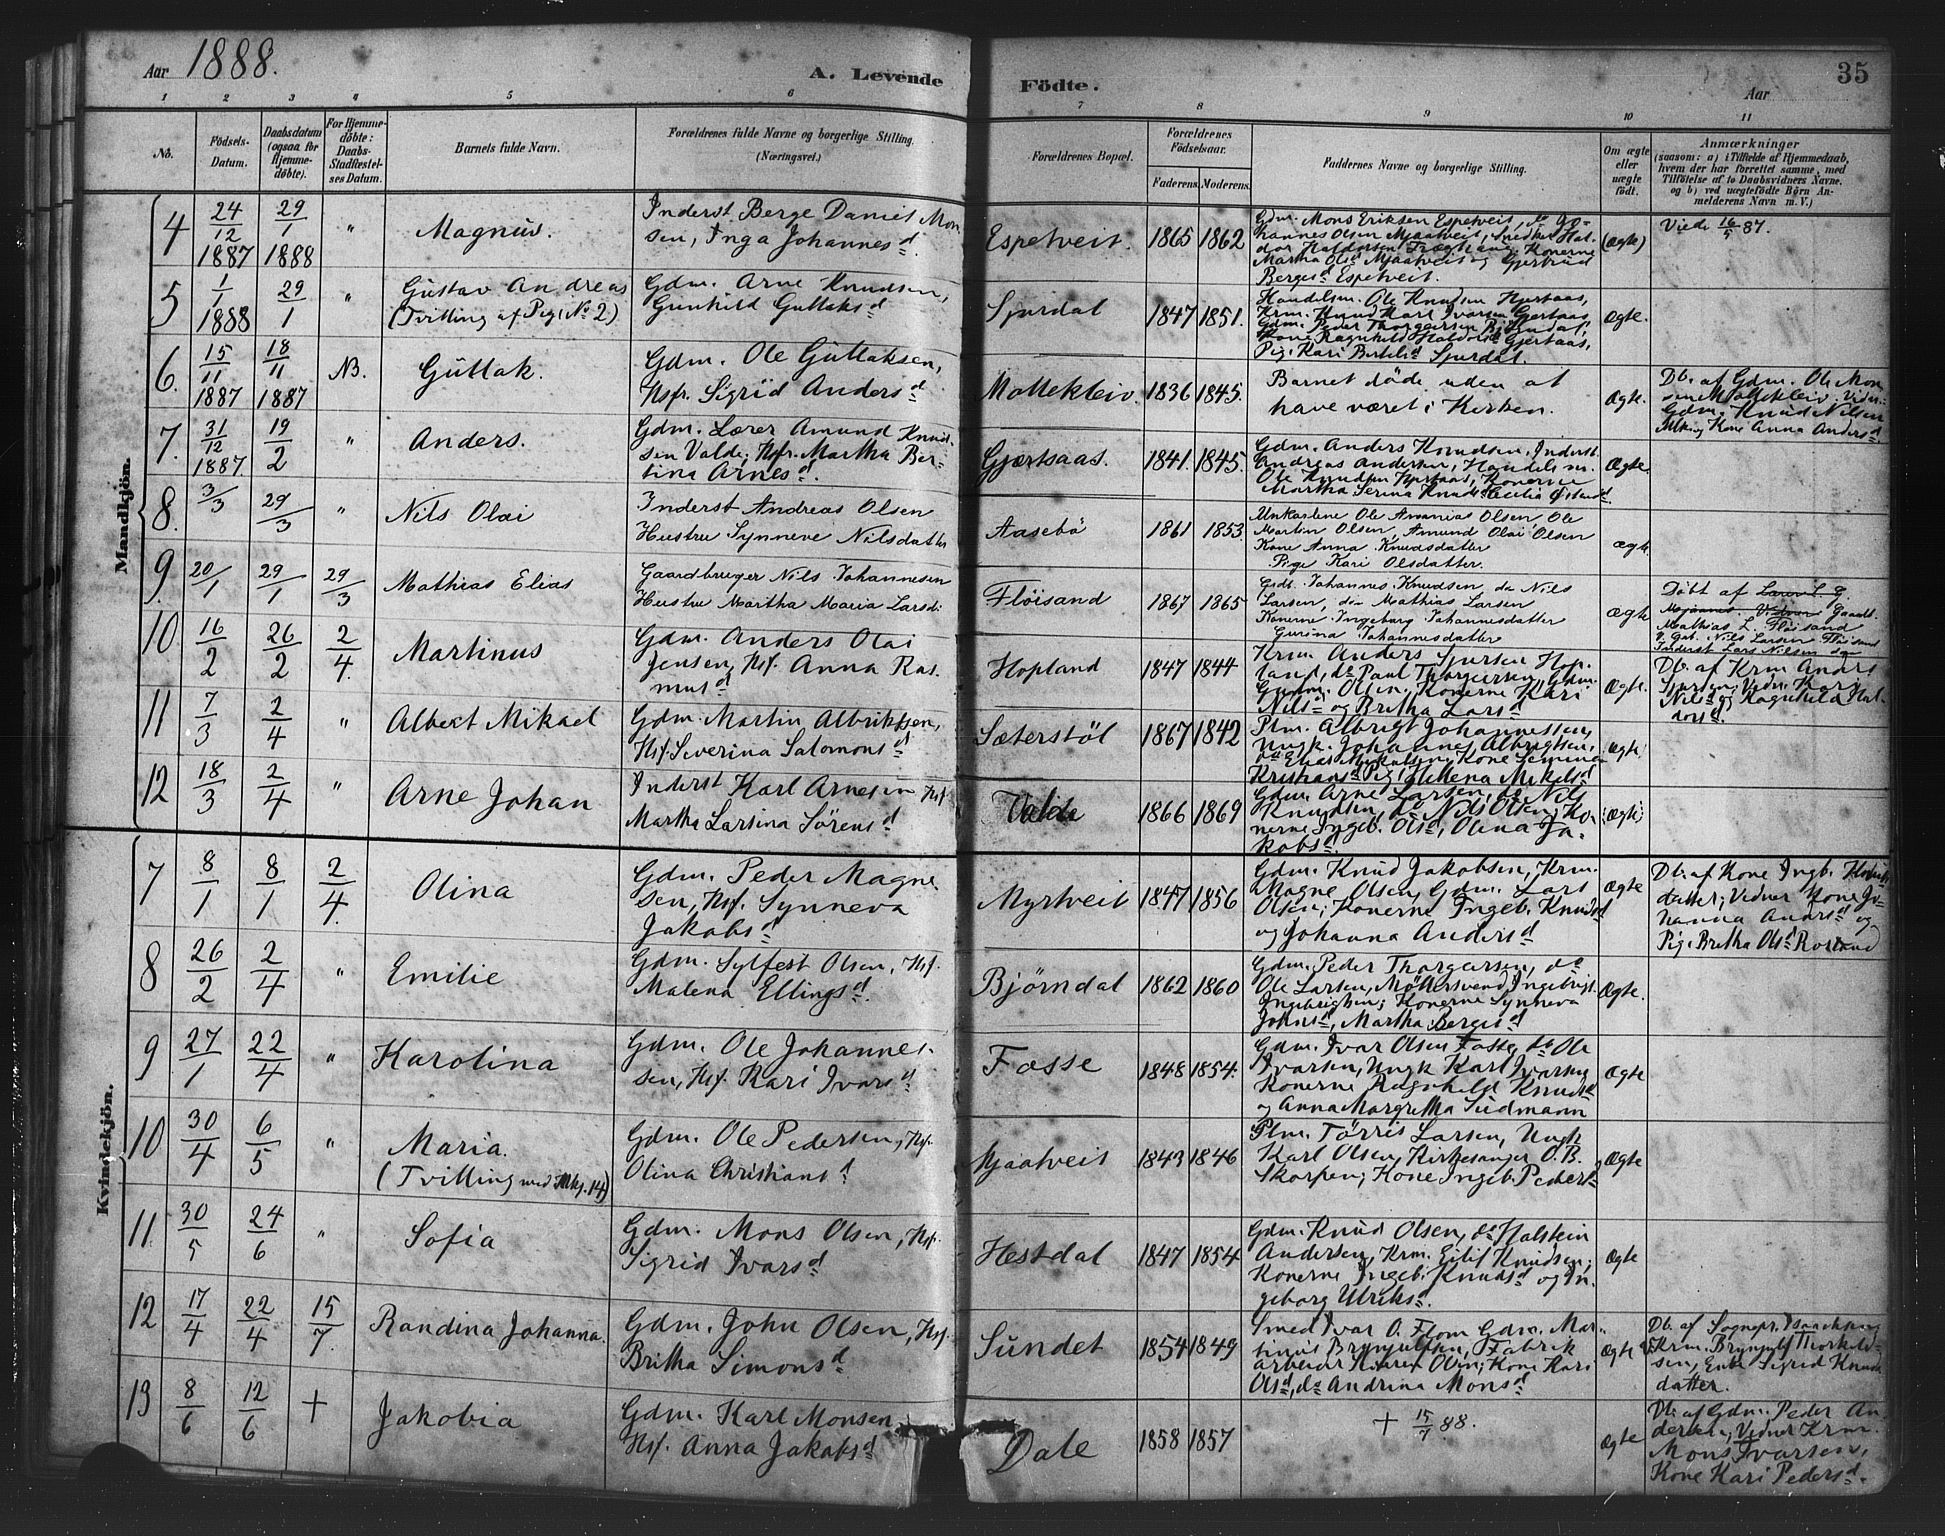 Aar 1888.
A. Levende Födte.
Aar
35
1 2 3 4 5 6 7 8 9 10 11
No.
Födsels-Datum.
Daabsdatum (ogsaa for Hjemme-döbte).
For Hjemme-döbte: Daabs-Stadfæstel-ses Datum.
Barnets fulde Navn.
Forældrenes fulde Navne og borgerlige Stilling. (Næringsvei.)
Forældrenes Bopæl.
Forældrenes Födselsaar.
Faderens.
Moderens.
Faddernes Navne og borgerlige Stilling.
Om ægte eller uægte födt.
Anmærkninger
(saasom: a) i Tilfælde af Hjemmedaab, hvem der har forrettet samme, med Tilföielse af to Daabsvidners Navne, og b) ved uægtefödte Börn An-melderens Navn m. V.)
Mandkjön.
4 24/12 1887 29/1 1888 " Magnus.
Inderst Berge Daniel Mon-
sen, Inga Johannesd
Espetveit. 1865 1862
Gdm. Mons Eriksen Espetveit, do Jo-
hannes Olsen Mjaatveit, Snedker Hal-
dor Haldorsen, Konerne
Martha Olsd Mjaatveit og Gjertrud
Bergesd Espetveit.
(Ægte) Viede 16/5 87.
5 1/1 1888 29/1 " Gustav Andreas
(Tvilling af Pige No 2)
Gdm. Arne Knudsen,
Gunhild Guttaksd
Sjurdal 1847 1851.
Handelsm. Ole Knudsen Hjertaas,
Krm. Knud Karl Ivarsen Gjertaas,
Gdm. Peder Thorgersen Björndal;
Kone Ragnhild Haldorsd Gjertaas,
Pige Kari Bertelsd Sjurdal.
Ægte.
6. 15/11 1887 18/11 1887 NB. Guttak.
Gdm. Ole Guttaksen,
Hsfr. Sigrid Andersd
Møttekleiv. 1836 1845.
Barnet døde uden at
have været i Kirken.
Ægte.
Db. af Gdm. Ole Mon-
sen Møttekleiv. Vidner:
Gdm. Knud Nilsen
Kone Anna Andersd
7. 31/12 1887. 19/2 " Anders.
Gdm. Lærer Amund Knud-
sen Valde, Hsfr. Martha Ber-
tina Arnesd
Gjertsaas. 1841. 1845.
Gdm. Anders Knudsen, Inderst
Andreas Andersen, Handelsm.
Ole Knudsen Hjertaas, Konerne
Martha Serina Knudsd
Ægte.
8. 3/3 29/3 " Nils Olai
Inderst Andreas Olsen
Hustru Synneve Nilsdatter
Aasebö 1861 1853.
Unkarlene Ole Ananias Olsen, Ole
Martin Olsen, Amund Olai Olsen
Kone Anna Knudsdatter
Pige Kari Olsdatter.
ægte
9. 20/1 29/1 29/3 Mathias Elias
Gaardbruger Nils Johannesen
Hustru Martha Maria Larsd.
Flöisand 1867 1865
Grdb. Johannes Knudsen do Nils
Larsen, do Mathias Larsen
Konerne Ingeborg Johannesdatter
Gurina Johannesdatter
ægte
Döbt af
Gaardb.
Mathias L. Flöisand
Nils Larsen Flöisand
Inderst Lars Nilsen do
10. 16/2 26/2 2/4. Martinus
Gdm. Anders Olai
Jensen, Hsf. Anna Ras-
musd
Hopland 1847 1844
Krm. Anders Sjursen Hop-
land, do Paul Thorgersen, Gdm.
Gudm. Olsen, Konerne Kari
Nilsd og Britha Larsd
Ægte.
Db. af Krm. Anders
Sjursen; Vidn. Kari
Nilsd og Ragnhild Hal-
dorsd.
11 7/3 2/4 " Albert Mikael
Gdm. Martin Albriktsen,
Hsf. Severina Salomonsd
Sæterstöl 1867 1842
Plm. Albrigt Johannessen,
Ungk. Johannes Albrigtsen,
do Elias Mikalsen, Kone Severina
Kristiansd Pige Hellena Mikelsd
Ægte
12 18/3 2/4 " Arne Johan
Inderst Karl Arnesen Hsf.
Martha Larsina Sörensd
Valde 1866 1869
Gdm. Arne Larsen, do Nils
Knudsen, do Nils Olsen; Ko-
nerne Ingeb. Olsd, Olina Ja-
kobsd.
(Ægte)
Kvindekjön.
7 8/1 8/1 2/4. Olina
Gdm. Peder Magne-
sen, Hsf. Synneva
Jakobsd
Myrtveit 1847 1856
Gdm. Knud Jakobsen, Krm.
Magne Olsen, Gdm. Lars
Olsen; Konerne Ingeb. Knudsd
og Johanna Andersd
Ægte
Db. af Kone Ingb.
datter; Vidner Kone Jo-
hanna Andrsd og
Pige Britha Olsd Rosland
8 26/2 2/4 " Emilie
Gdm. Sylfest Olsen, Hsf.
Malena Ellingsd.
Björndal 1862 1860
Gdm. Peder Thorgersen, do
Ole Larsen, Möllersvend Ingebrigt
Ingebrigtsen; Konerne Synneva
Johnsd, Martha Bergesd
Ægte.
9 27/1 22/4 " Karolina
Gdm. Ole Johannes-
sen, Hsf. Kari Ivarsd
Fosse 1848 1854.
Gdm. Ivar Olsen Fosse, do Ole
Ivarsen, Ungk Karl Ivarsen
Konerne Ragnhild Knudsd
og Anna Margretha Sudmann
Ægte
10 30/4 6/5 " Maria.
(Tvilling med Mkj. 14)
Gdm. Ole Pedersen, Hsf.
Olina Christiansd
Mjaatveit 1843 1846
Plm. Törris Larsen, Ungk
Karl Olsen, Kirkesanger O. B.
Skorpen; Kone Ingeb. Pedersd
Ægte
11. 30/5 24/6 " Sofia
Gdm. Mons Olsen, Hsf.
Sigrid Ivarsd
Hestdal 1847 1854
Gdm. Knud Olsen, do Halstein
Andersen, Krm. Eilif Knudsen;
Konerne Ingeb. Knudsd og In-
geborg Ulriksd.
Ægte
12 17/4 22/4 15/7. Randina Johanna.
Gdm. John Olsen, Hsf.
Britha Simonsd
Sundet 1854 1849
Smed Ivar O. Flom Gdm. Mar-
tinus Brynjulfsen, Fabrik
arbeider Olsen; Kone Kari
Olsd, do Andrina Monsd
Ægte
Db. af Sognepr.
Krm. Brynjulf Thorkild-
sen, Enke Sigrid Knuds
datter.
13 8/6 12/6 + Jakobia
Gdm. Karl Monsen
Hsf. Anna Jakobsd
Dale 1858 1857
+ 15/7 88.
Ægte
Db. af Gdm. Peder An-
dersen, Vidner Krm.
Mons Ivarsen,
Kone Kari Pedersd.